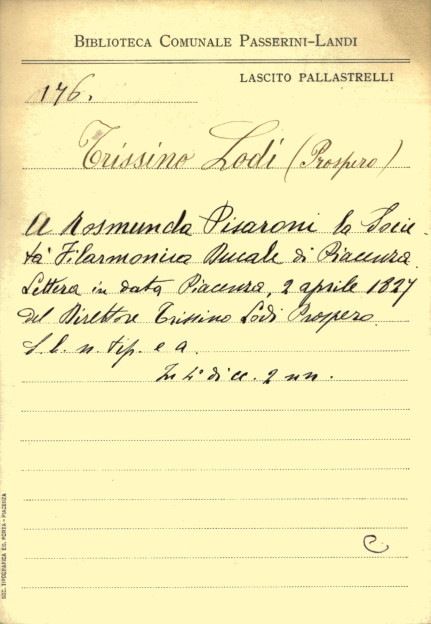 BIBLIOTECA COMUNALE PASSERINI-LANDI
LASCITO PALLASTRELLI
176.
Trissino Lodi (Prospero)
A Rosmunda Pisaroni la Socie-
tà Filarmonica Ducale di Piacenza.
Lettera in data Piacenza, 2 aprile 1827
del Direttore Trissino Lodi Prospero.
S. l. n. tip. e a.
In 4° di cc. 2 nn.
C
SOC. TIPOGRAFICA ED. PORTA - PIACENZA